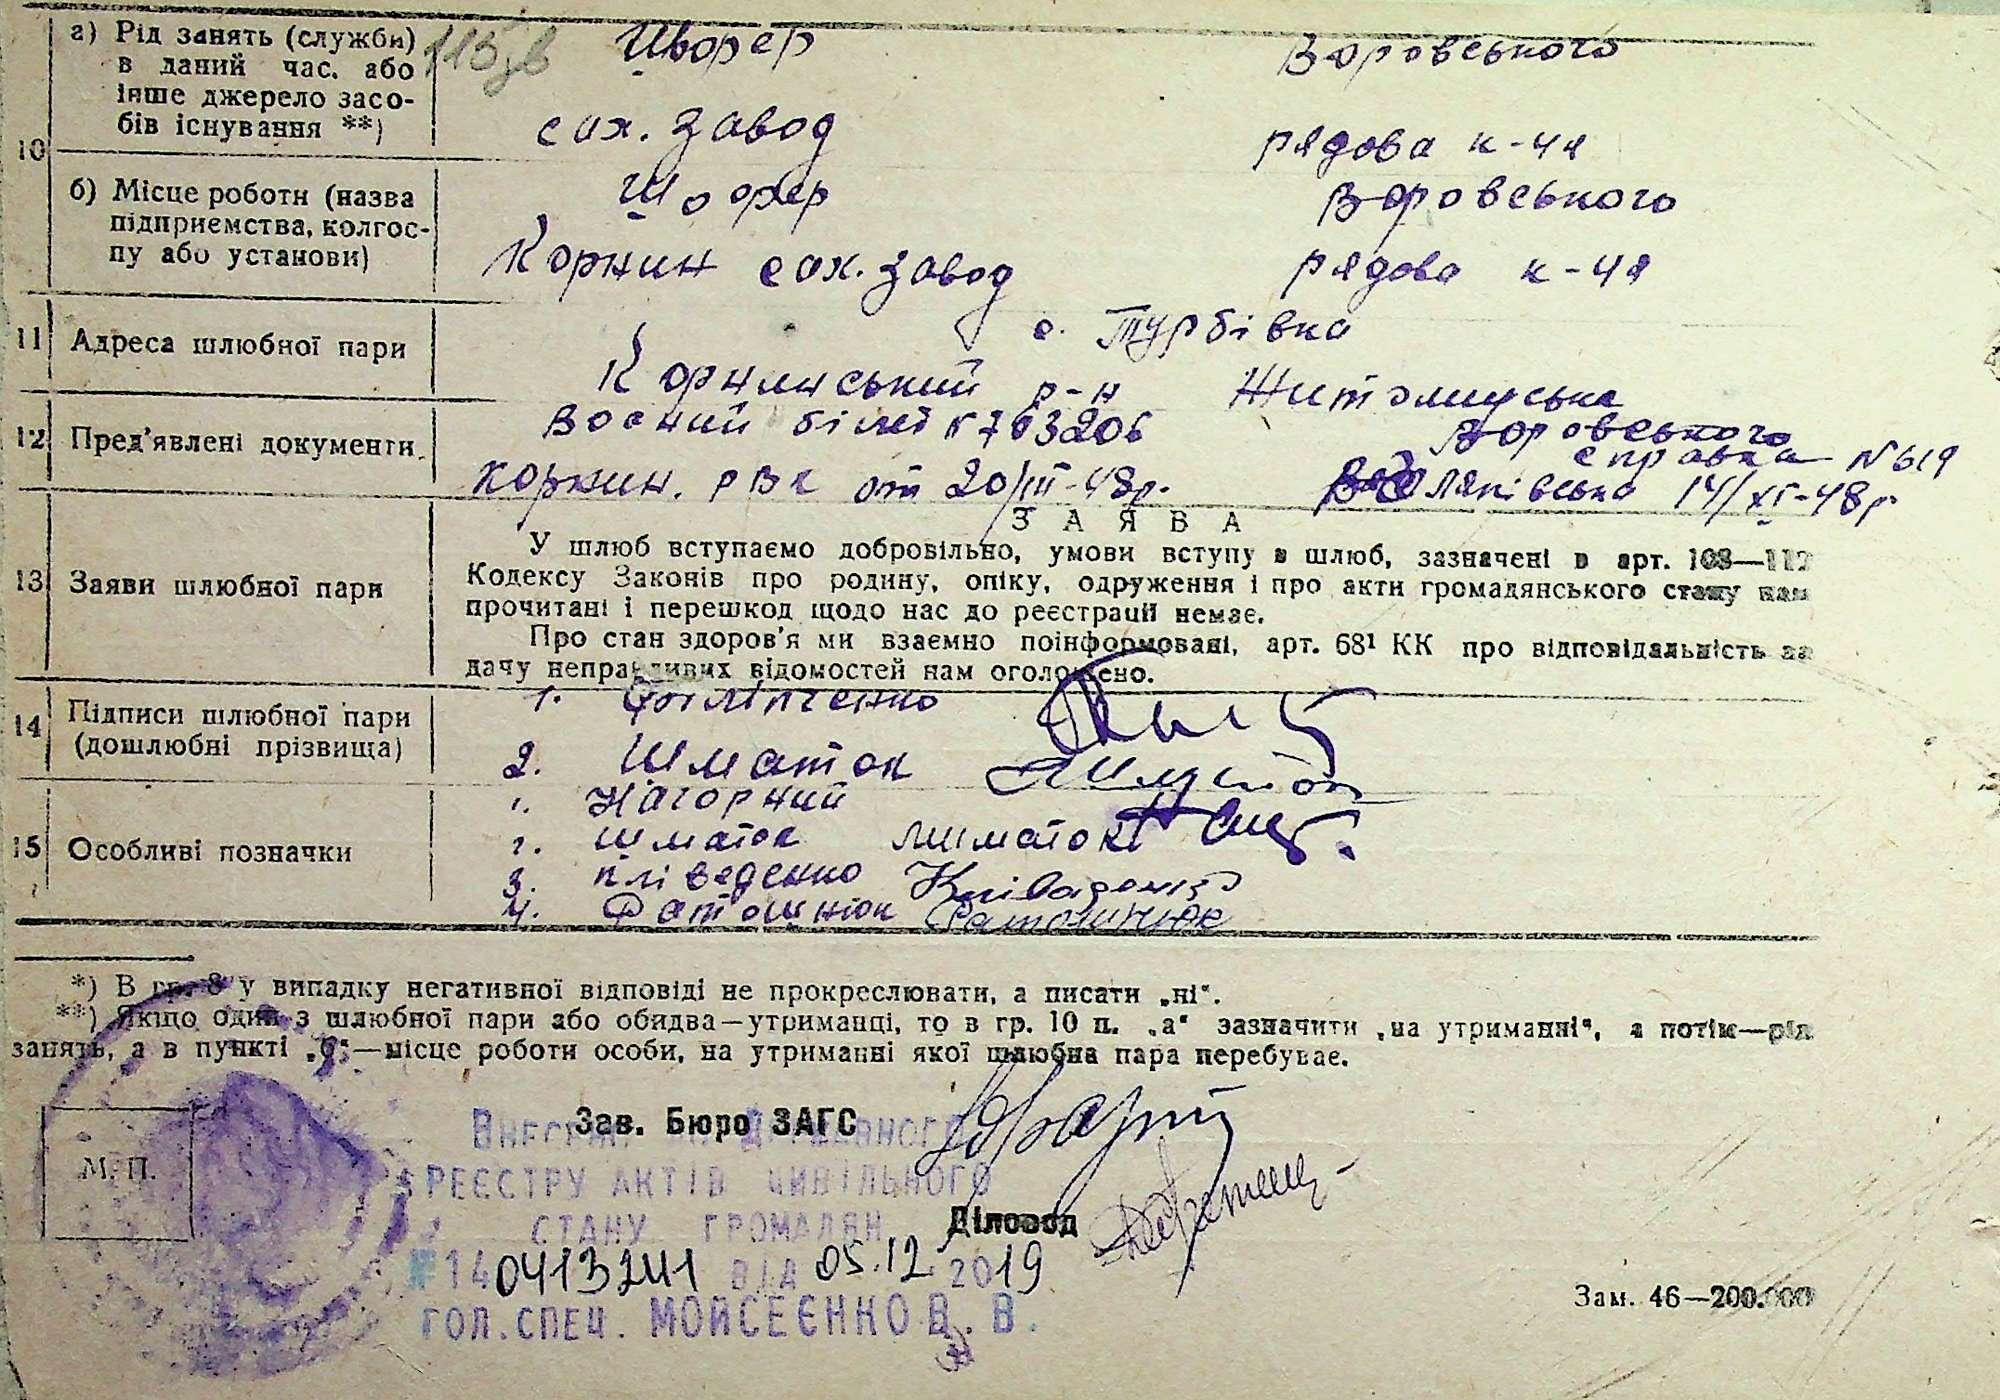 а) Рід занять (служби)
в даний час. або
інше джерело засо-
бів існування **)
10
Шофер
Воровського
сах. завод
рядова к-ця
б) Місце роботи (назва
підприємства, колгос-
пу або установи)
Шофер
Воровського
Корнин сах. завод
рядова к-ця
11 Адреса шлюбної пари
с. Турбівка
Корнинський р-н Житомирська
12 Пред'явлені документи
Воєний білет № 763206
Воровського
справка №619
Корнин. РВК от 20/III-48р.
14/XI-48р.
ЗАЯВА
13 Заяви шлюбної пари
У шлюб вступаємо добровільно, умови вступу в шлюб, зазначені в арт. 108—112
Кодексу Законів про родину, опіку, одруження і про акти громадянського стану нам
прочитані і перешкод щодо нас до реєстрації немає.
Про стан здоров'я ми взаємно поінформовані, арт. 68¹ КК про відповідальність за
дачу неправдивих відомостей нам оголошено.
14 Підписи шлюбної пари
(дошлюбні прізвища)
1. Філіпченко
2. Шматок
15 Особливі позначки
1. Нагорний
2. Шматок
3.
4. Фатошнюк
*) В гр. 8 у випадку негативної відповіді не прокреслювати, а писати „ні".
**) Якщо один з шлюбної пари або обидва—утриманці, то в гр. 10 п. „а" зазначити „на утриманні", а потім—рід
занять, а в пункті „б"—місце роботи особи, на утриманні якої шлюбна пара перебуває.
М. П.
Зав. Бюро ЗАГС
Внесено до Державного
реєстру актів цивільного
стану громадян
Діловод
№ 1404132411 від 05.12.2019
гол. спец. Мойсеєнко В. В.
Зам. 46—200.000